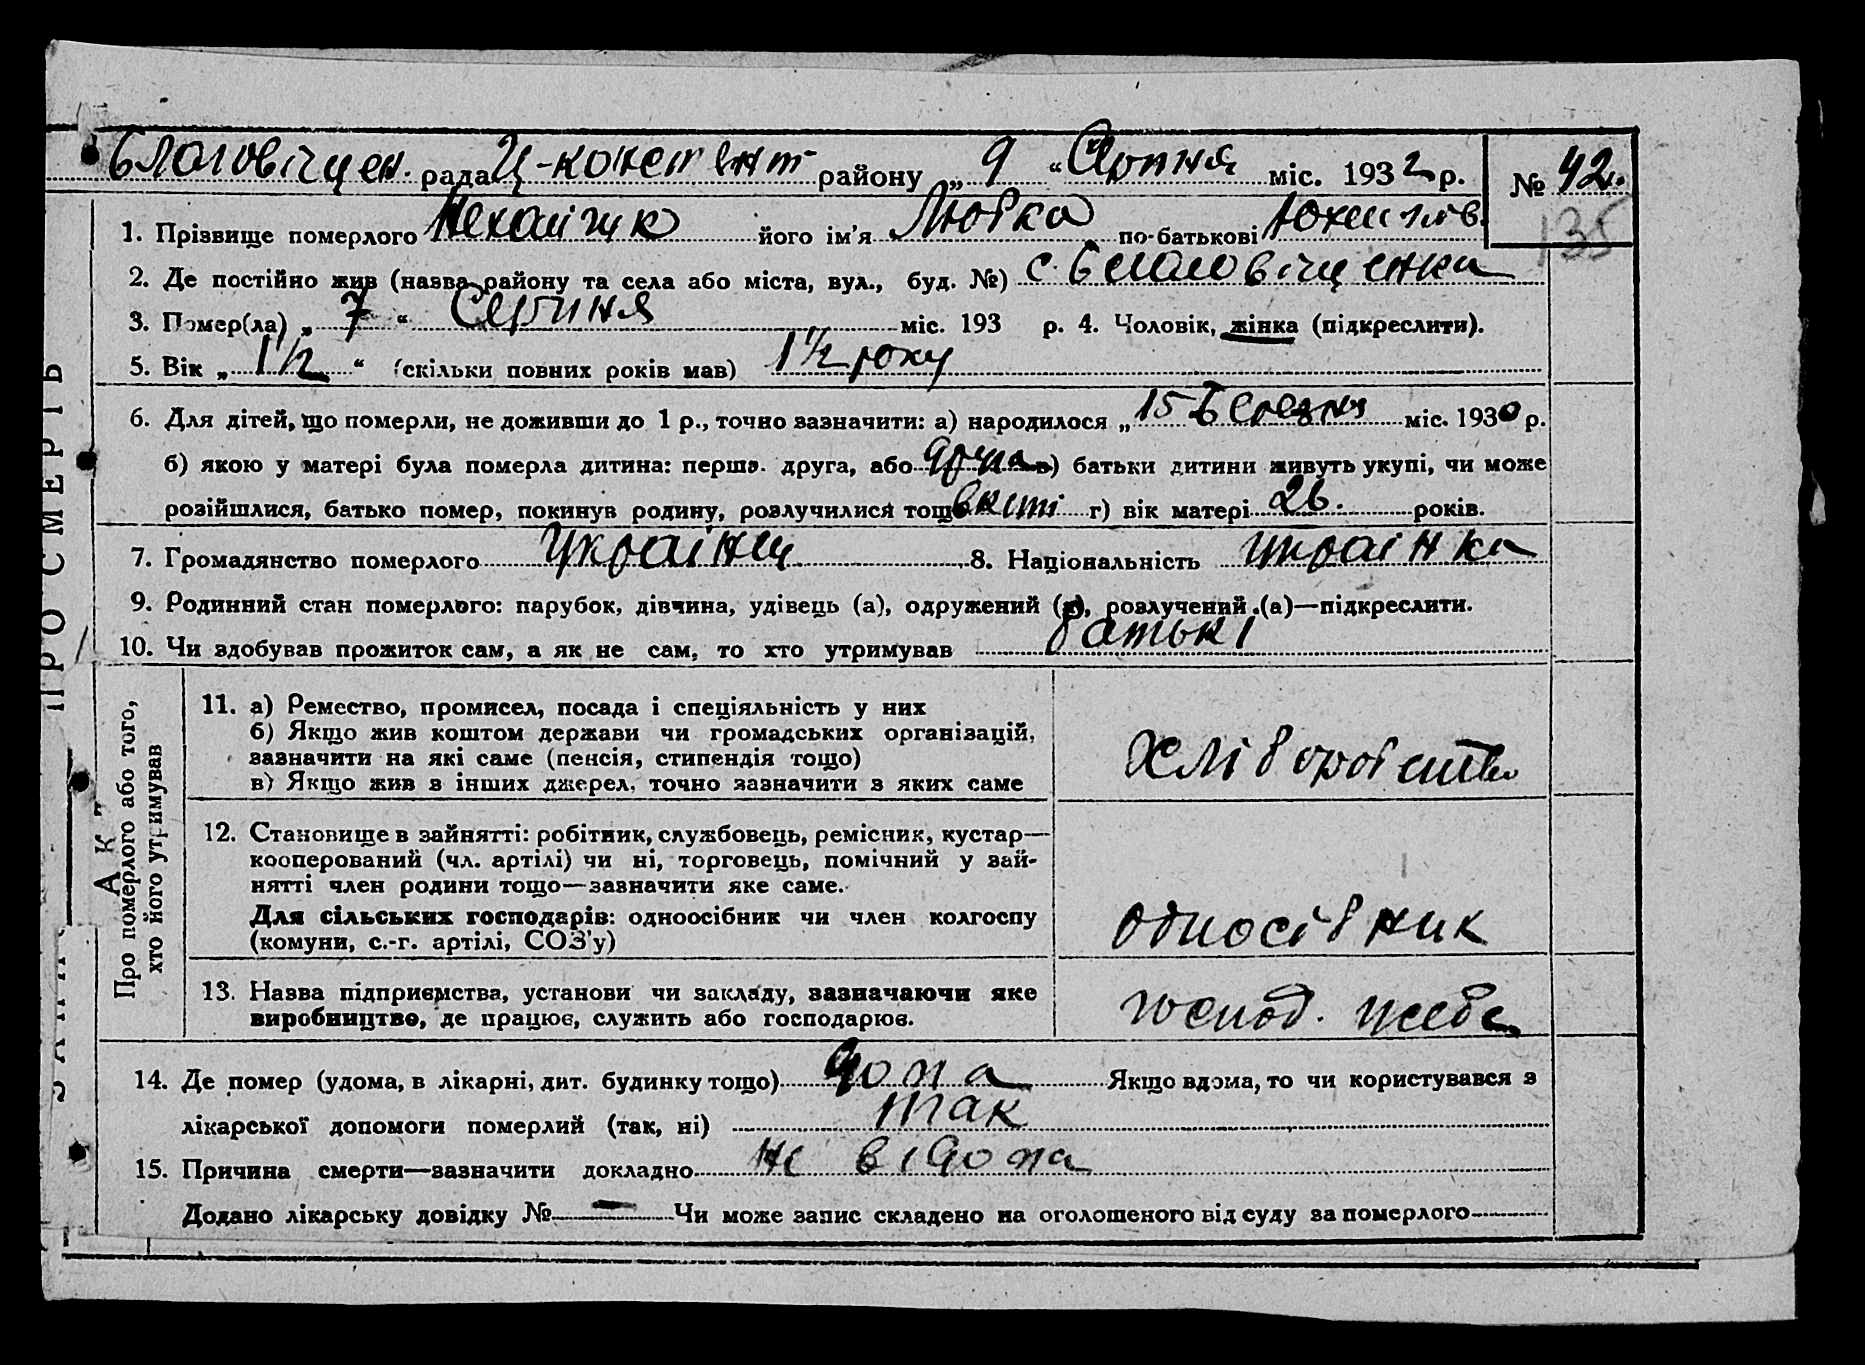 Благовіщен. рада Ц-констент району „ 9 “ Серпня міс. 1932 р. № 42.
135
1. Прізвище померлого його ім'я Любка по-батькові
2. Де постійно жив (назва району та села або міста, вул., буд. №) с. Благовіщенка
3. Помер(ла) „ 7 “ Серпня міс. 193 р. 4. Чоловік, жінка (підкреслити).
5. Вік „ 1½ “ (скільки повних років мав) 1½ року
6. Для дітей, що померли, не доживши до 1 р., точно зазначити: а) народилося „ 15 Березня міс. 1930 р.
б) якою у матері була померла дитина: перша, друга, або друга в) батьки дитини живуть укупі, чи може
розійшлися, батько помер, покинув родину, розлучилися тощо вкупі г) вік матері 26. років.
7. Громадянство померлого 8. Національність українка
9. Родинний стан померлого: парубок, дівчина, удівець (а), одружений (а), розлучений (а)—підкреслити.
10. Чи здобував прожиток сам, а як не сам, то хто утримував батькі
ПРО СМЕРТЬ
АКТ
Про померлого або того,
хто його утримував
11. а) Ремество, промисел, посада і спеціяльність у них
б) Якщо жив коштом держави чи громадських організацій,
зазначити на які саме (пенсія, стипендія тощо)
в) Якщо жив з інших джерел, точно зазначити з яких саме
хліборобство
12. Становище в зайнятті: робітник, службовець, ремісник, кустар—
кооперований (чл. артілі) чи ні, торговець, помічний у зай-
нятті член родини тощо—зазначити яке саме.
Для сільських господарів: одноосібник чи член колгоспу
(комуни, с.-г. артілі, СОЗ'у)
односібник
13. Назва підприємства, установи чи закладу, зазначаючи яке
виробництво, де працює, служить або господарює.
господ. у себе
14. Де помер (удома, в лікарні, дит. будинку тощо) дома Якщо вдома, то чи користувався з
лікарської допомоги померлий (так, ні) так
15. Причина смерти—зазначити докладно не відома
Додано лікарську довідку № — Чи може запис складено на оголошеного від суду за померлого